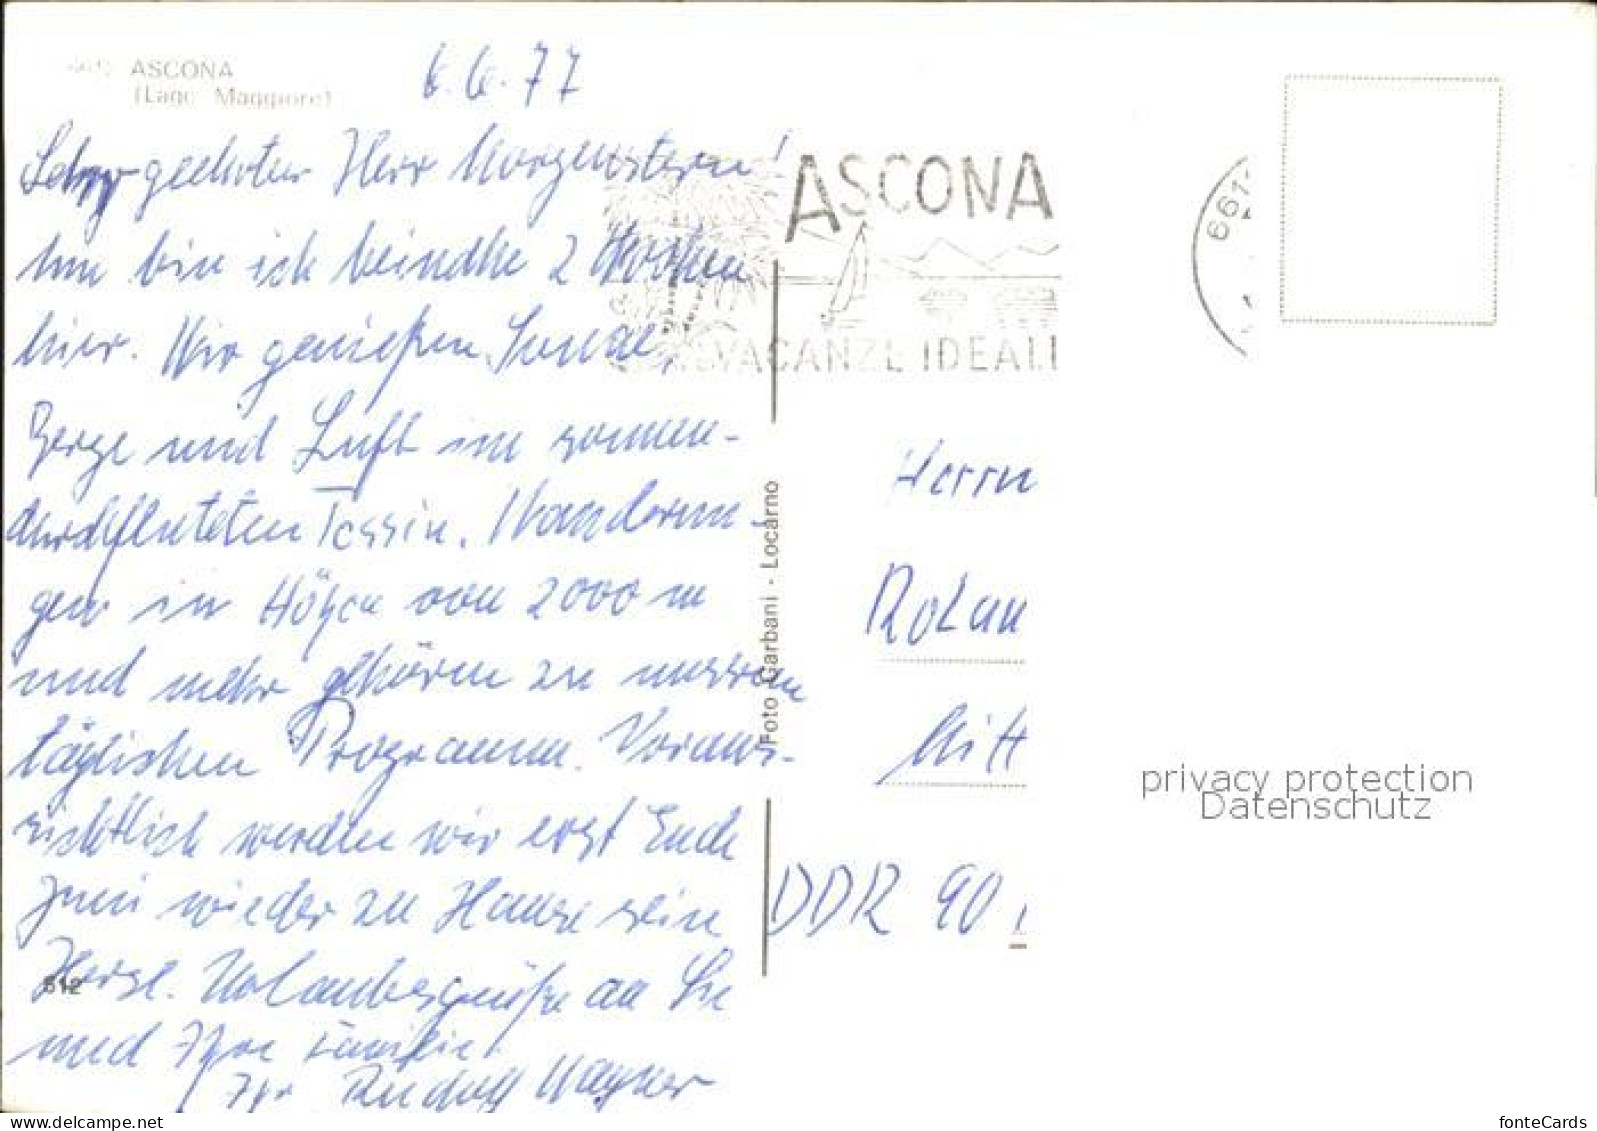 ASCONA
(Lago Maggiore)
6.6.77
Sehr geehrter Herr Morgenstern!
Nun bin ich beinahe 2 Wochen
hier. Wir genießen Sonne,
Berge und Luft im sonnen-
durchfluteten Tessin. Wanderun-
gen in Höhen von 2000 m
und mehr gehören zu unserem
täglichen Programm. Voraus-
sichtlich werden wir erst Ende
Juni wieder zu Hause sein
Herzl. Urlaubsgrüße an Sie
und Ihre Familie
Ihr Rudolf Wagner
512
Foto Garbani - Locarno
ASCONA
VACANZE IDEALI
661
Herrn
Rolan
Mitt
DDR 90
privacy protection
Datenschutz
fonteCards